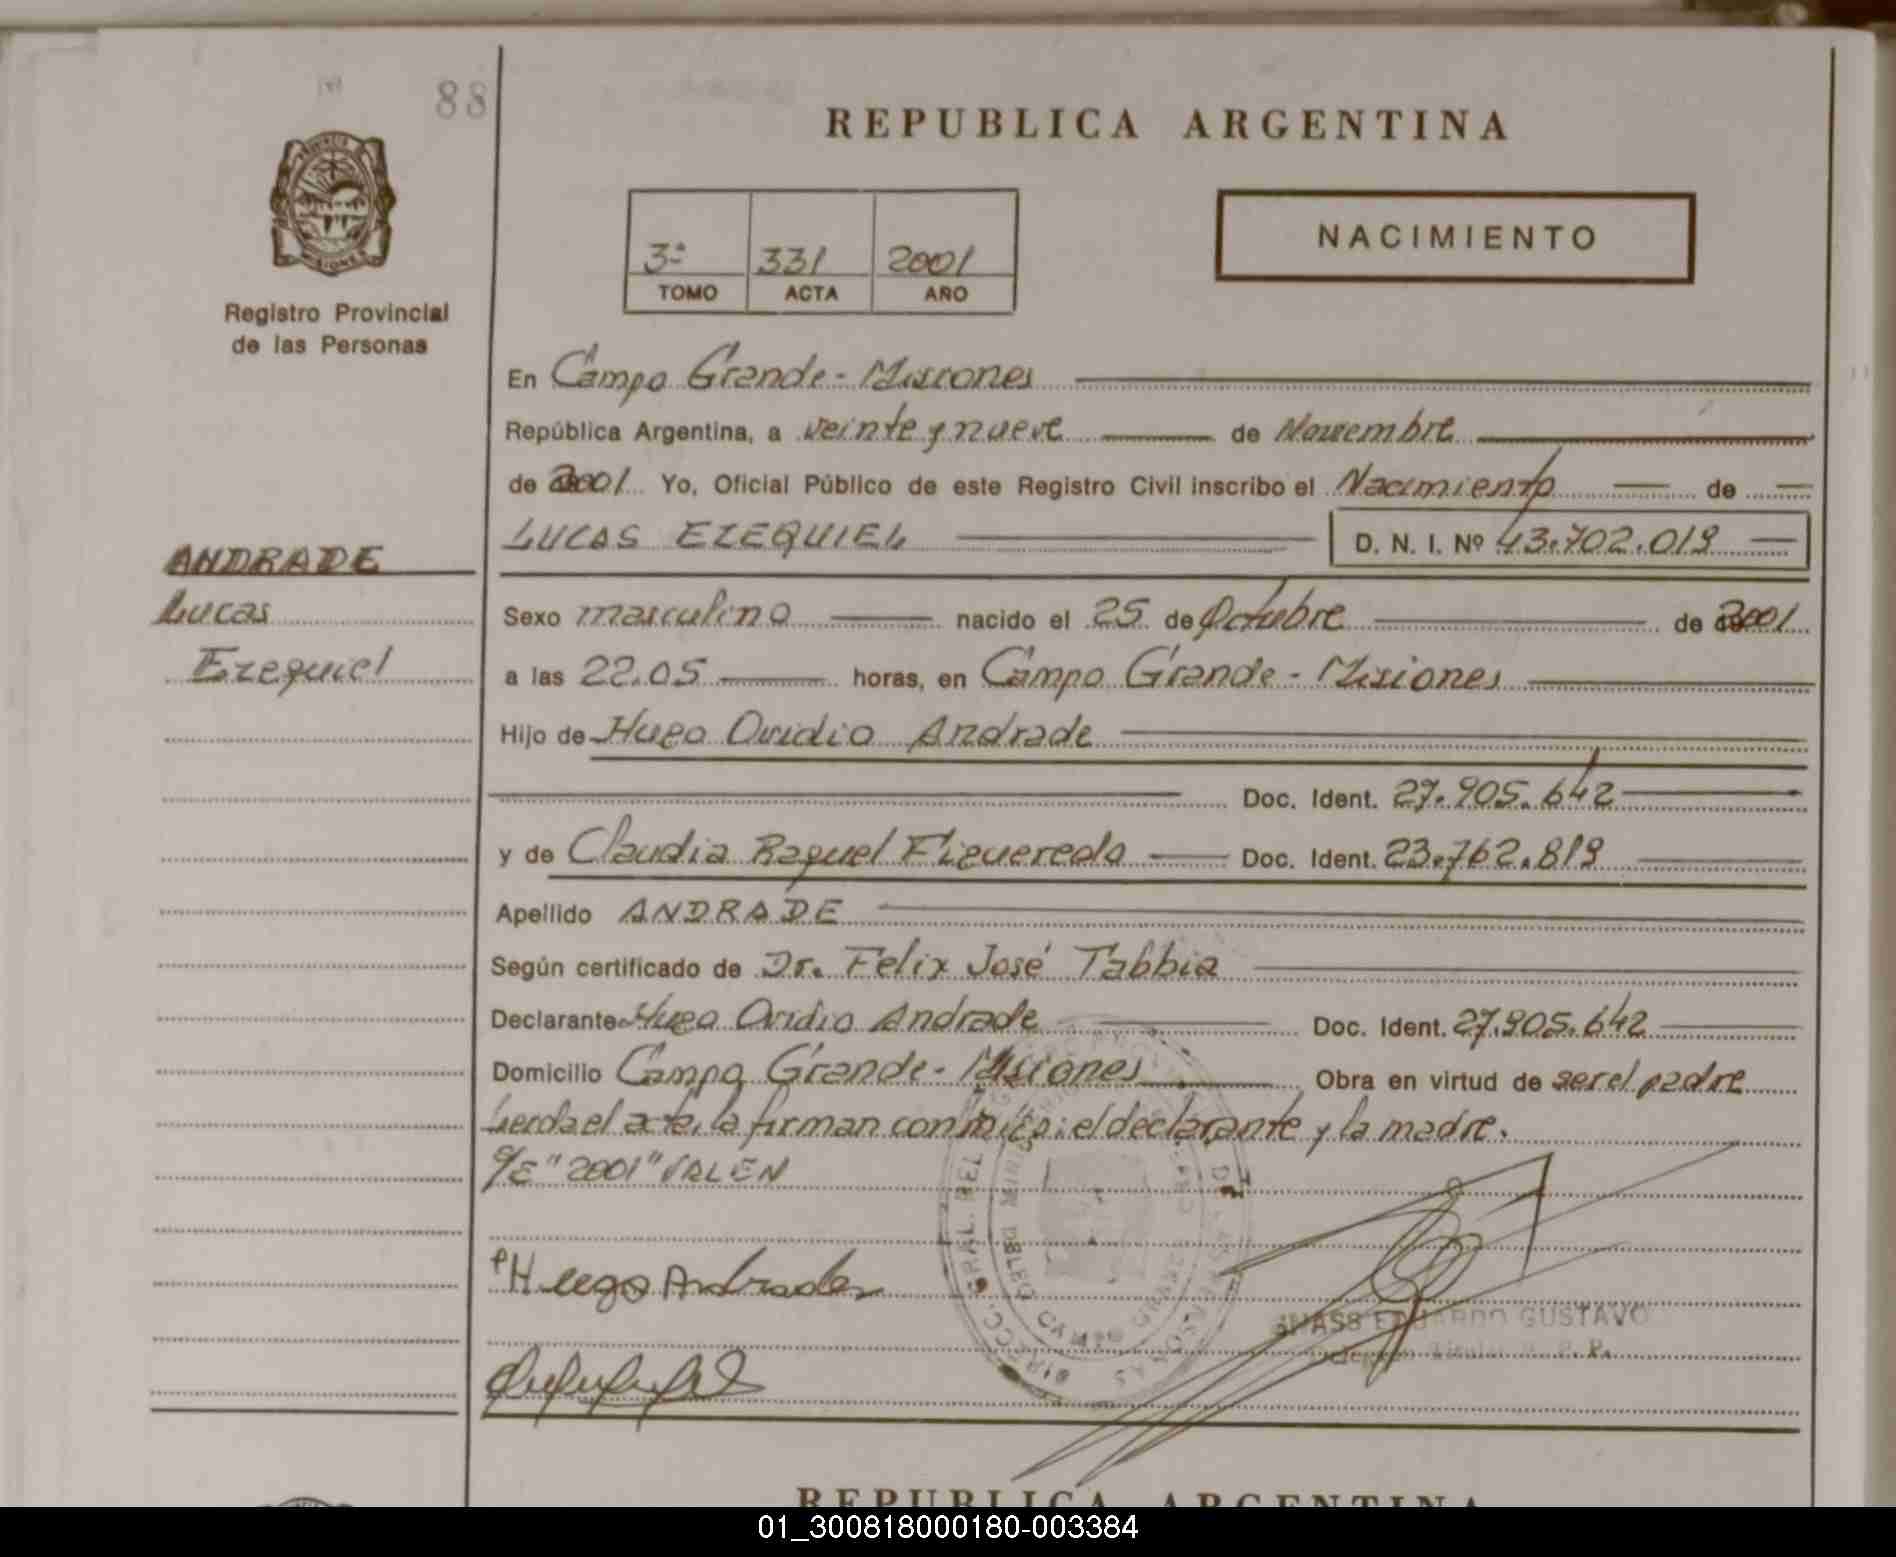 88
REPUBLICA ARGENTINA
3ª 331 2001
TOMO ACTA AÑO
NACIMIENTO
PROVINCIA DE MISIONES
Registro Provincial
de las Personas
En Campo Grande - Misiones
República Argentina, a veinte y nueve de Noviembre
de 2001 Yo, Oficial Público de este Registro Civil inscribo el Nacimiento de
LUCAS EZEQUIEL D. N. I. Nº 43.702.019
ANDRADE
Lucas
Ezequiel
Sexo masculino nacido el 25 de Octubre de 2001
a las 22.05 horas, en Campo Grande - Misiones
Hijo de Hugo Ovidio Andrade
Doc. Ident. 27.905.642
y de Claudia Raquel Figueredo Doc. Ident. 23.762.819
Apellido ANDRADE
Según certificado de Dr. Felix José Tabbia
Declarante Hugo Ovidio Andrade Doc. Ident. 27.905.642
Domicilio Campo Grande - Misiones Obra en virtud de ser el padre
Leida el acta, la firman conmigo: el declarante y la madre.
S/E "2001" VALEN
Hugo Andrade
EDUARDO GUSTAVO
REPUBLICA ARGENTINA
01_300818000180-003384